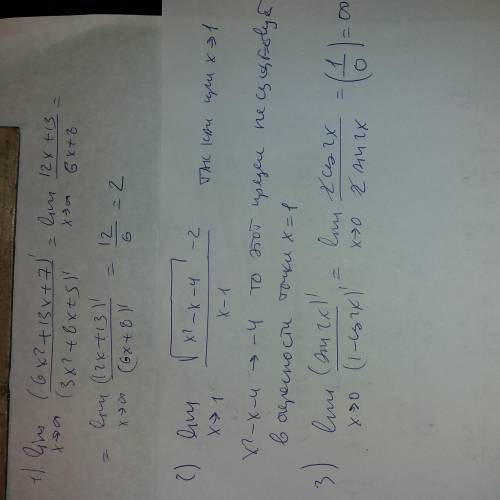 1) lim x→∞ (6x²+13x+7)' / (3x²+8x+5)' = lim x→∞ 12x+13 / 6x+8 =
= lim x→∞ (12x+13)' / (6x+8)' = 12/6 = 2
2) lim x→1 √(x²-x-4) -2 / x-1 так как при x→1
x²-x-4 → -4 то этот предел не существует
в окрестности точки x=1
3) lim x→0 (sin2x)' / (1-cos2x)' = lim x→0 2cos2x / 2sin2x = (1/0) = ∞